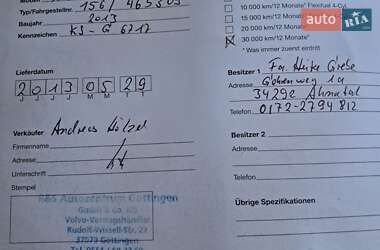 Typ/Fahrgestellnr. 156/ 465303
Baujahr 2013
Kennzeichen KS-G 6717
Lieferdatum
2 0 1 3 0 5 2 9
J J J J M M T T
Verkäufer Andreas
Firmenname
Adresse
Unterschrift
Stempel
Autozentrum Göttingen
GmbH & Co. KG
Volvo-Vertragshändler
Rudolf-Wissell-Str. 22
37079 Göttingen
10 000 km/12 Monate* Flexifuel 4-Cyl.
20 000 km/12 Monate*
30 000 km/12 Monate*
* Was immer zuerst eintritt
Besitzer 1 Fa.
Adresse 1a
34292 Ahnatal
Telefon 0172-2794812
Besitzer 2
Adresse
Telefon
Übrige Spezifikationen
AUTO RIA.com